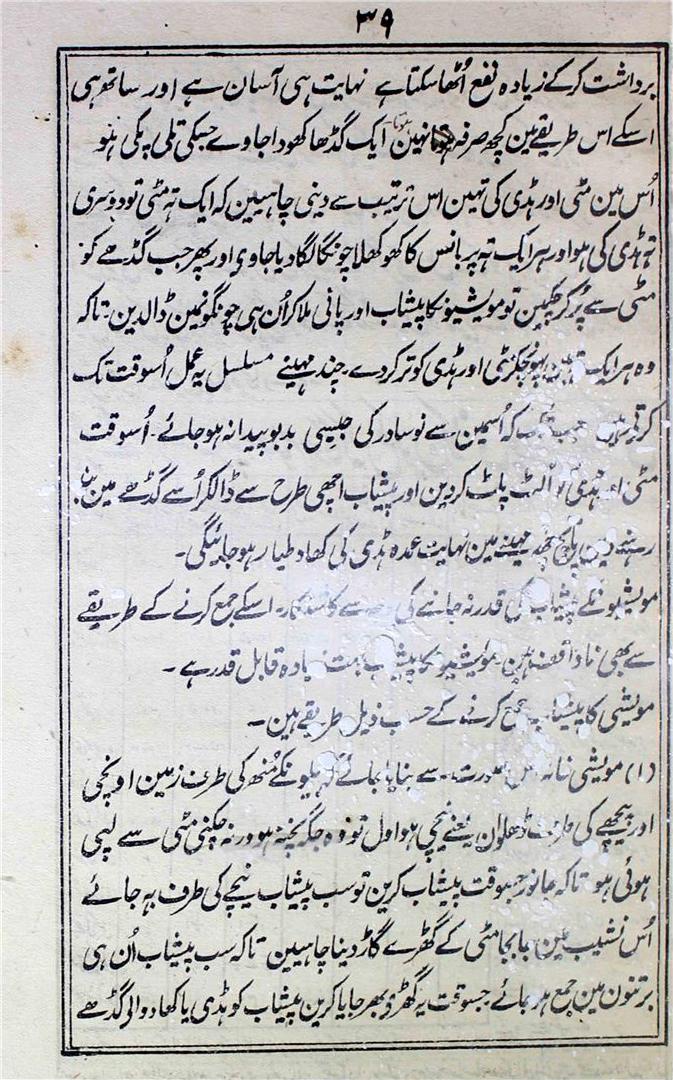 ۳۹
برداشت کرکے زیادہ نفع اُٹھا سکتا ہے نہایت ہی آسان ہے اور ساتھ ہی
اسکے اس طریقے مین کچھ صرفہ نہین ہوتا ایک گڈھا کھودا جاوے جسکی تلی پکی ہو
اُس مین مٹی اور ہڈی کی تہین اس ترتیب سے دینی چاہییین کہ ایک تہ مٹی تو دوسری
تہ ہڈی کی ہو اور ہر ایک تہ پر بانس کا کھوکھلا چونگا لگا دیا جاوی اور پھر جب گڈھے کو
مٹی سے پُر کر چکین تو مویشیونکا پیشاب اور پانی ملا کر اُن ہی چونگونمین ڈالدین۔ تاکہ
وہ ہر ایک تہ مین پہونچکر مٹی اور ہڈی کو تر کردے چند مہینے مسلسل یہ عمل اُسوقت تک
کرتے رہین جب تک کہ اُسمین سے نوسادر کی جیسی بدبو پیدا نہ ہو جائے۔ اُسوقت
مٹی اور ہڈی کو اُلٹ پاٹ کردین اور پیشاب اچھی طرح سے ڈالکر اُسے گڈھے مین
رہنے دین پانچ چھ مہینے مین نہایت عمدہ ہڈی کی کھاد طیار ہو جائیگی۔
مویشیونکے پیشاب کی قدر نہ جاننے کی وجہ سے کاشتکار۔ اسکے جمع کرنے کے طریقے
سے بھی ناواقف ہین۔ مویشیونکا پیشاب بہت زیادہ قابل قدر ہے۔
مویشی کا پیشاب جمع کرنے کے حسب ذیل طریقے ہین۔
(۱) مویشی خانہ اس صورت سے بنایا جائے کہ بیلونکے مُنھ کی طرف زمین اونچی
اور پیچھے کی طرف ڈھلوان یعنے نیچی ہو اول تو وہ جگہ پختہ ہو ورنہ چکنی مٹی سے لپی
ہوئی ہو تاکہ جانور جسوقت پیشاب کرین تو سب پیشاب نیچے کی طرف بہ جائے
اُس نشیب مین جابجا مٹی کے گھڑے گاڑ دینا چاہییین تاکہ سب پیشاب اُن ہی
برتنون مین جمع ہو جائے جسوقت یہ گھڑی بھر جایا کرین پیشاب کو ہڈی یا کھاد والی گڈھے